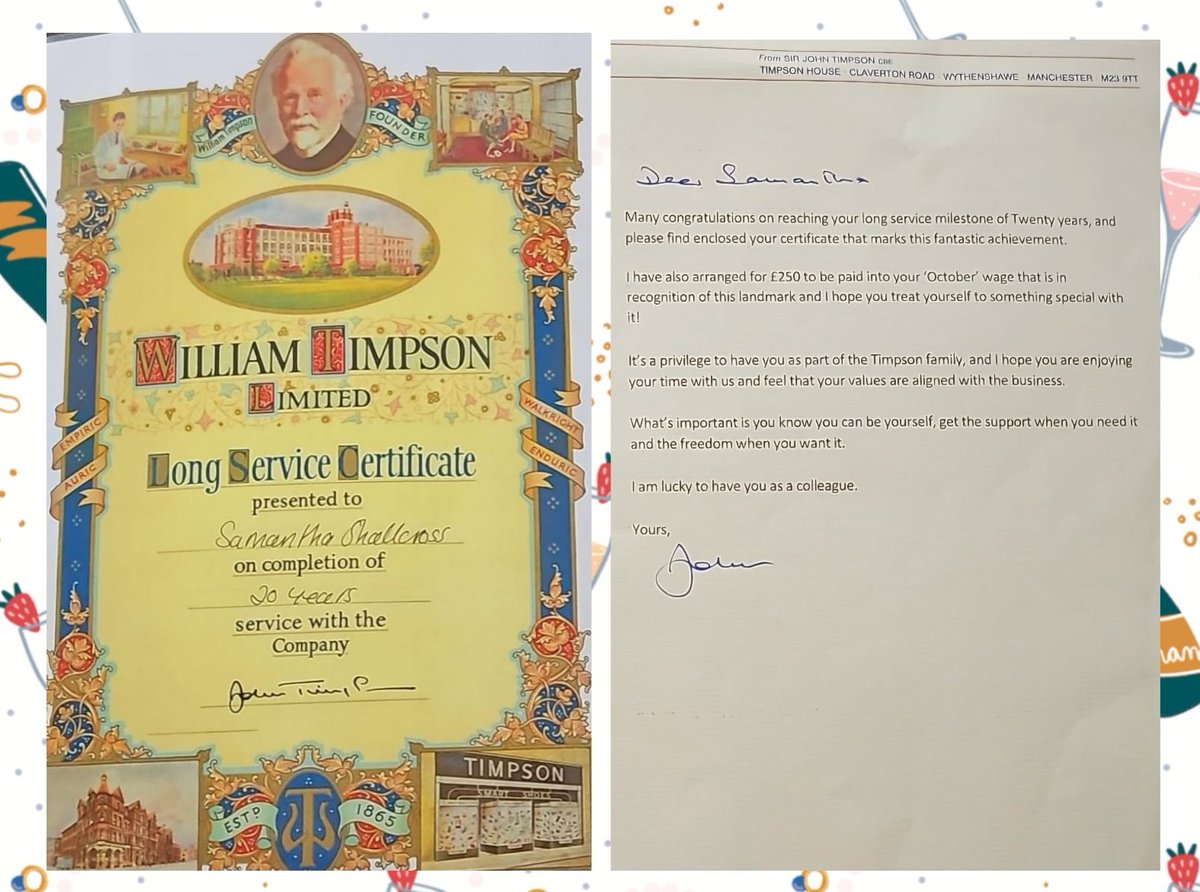 William Timpson
FOUNDER
WILLIAM TIMPSON
LIMITED
EMPIRIC
AURIC
WALKRIGHT
ENDURIC
Long Service Certificate
presented to
Samantha Shallcross
on completion of
20 years
service with the
Company
John Timpson
ESTD 1865
TIMPSON
SMART SHOES
From SIR JOHN TIMPSON CBE
TIMPSON HOUSE · CLAVERTON ROAD · WYTHENSHAWE · MANCHESTER · M23 9TT
Dear Samantha
Many congratulations on reaching your long service milestone of Twenty years, and
please find enclosed your certificate that marks this fantastic achievement.
I have also arranged for £250 to be paid into your ‘October’ wage that is in
recognition of this landmark and I hope you treat yourself to something special with
it!
It’s a privilege to have you as part of the Timpson family, and I hope you are enjoying
your time with us and feel that your values are aligned with the business.
What’s important is you know you can be yourself, get the support when you need it
and the freedom when you want it.
I am lucky to have you as a colleague.
Yours,
John